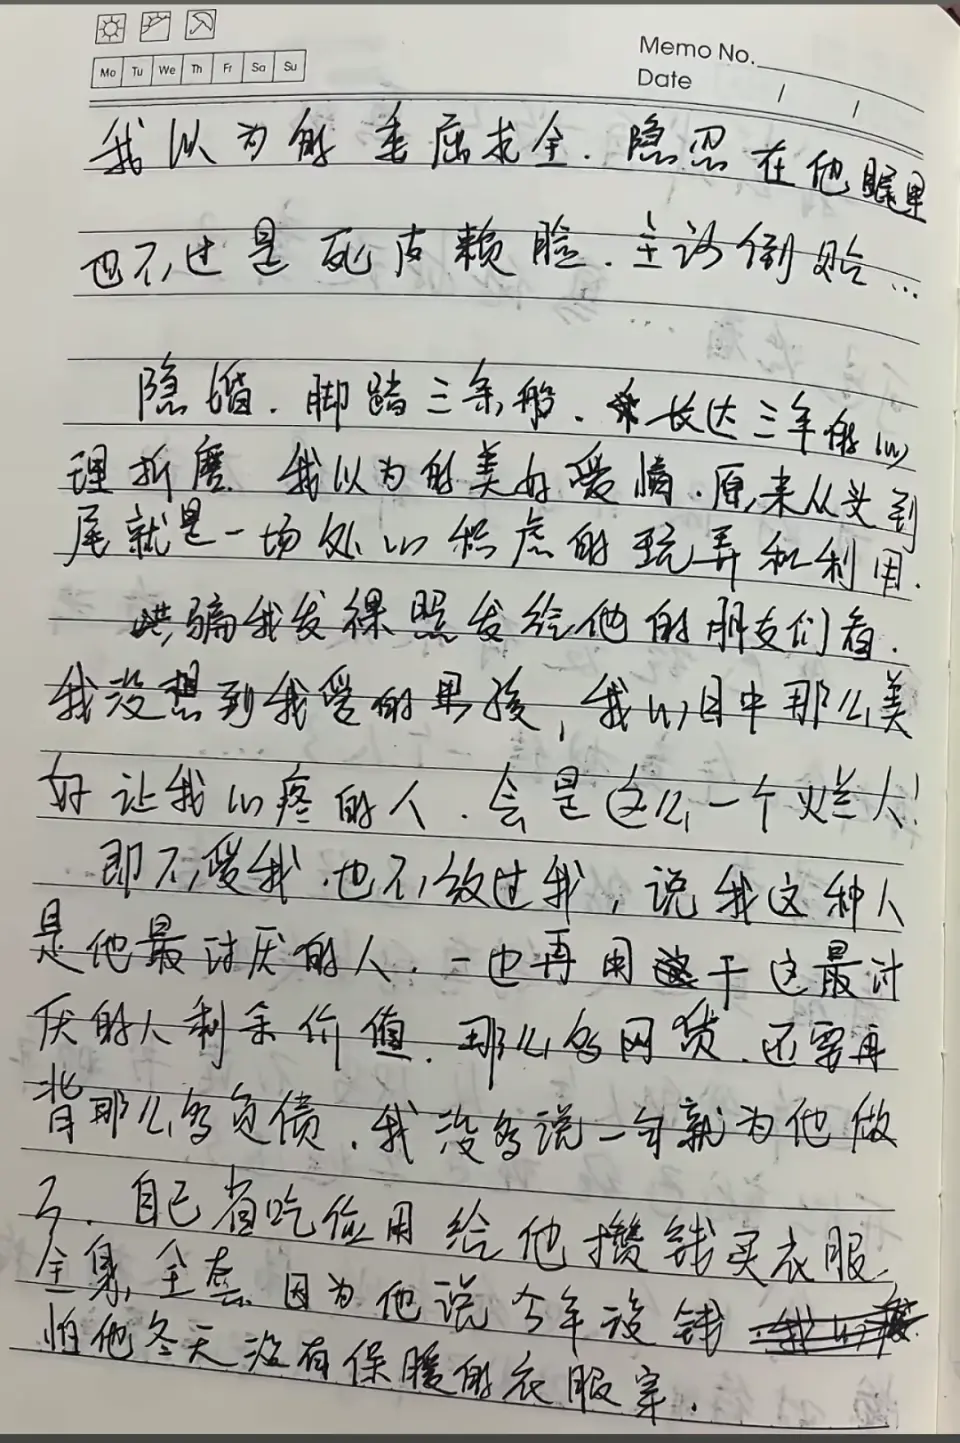 Memo No.
Mo Tu We Th Fr Sa Su
Date / /
我以为的委屈求全.隐忍在他眼里
也不过是死皮赖脸.主动倒贴...
隐婚.脚踏三条船.长达三年的心
理折磨.我以为的美好爱情.原来从头到
尾就是一场处心积虑的玩弄和利用.
哄骗我发裸照发给他的朋友们看.
我没想到我爱的男孩,我心目中那么美
好让我心疼的人.会是这么一个烂人!
即不爱我.也不放过我,说我这种人
是他最讨厌的人.一也再用干这最讨
厌的人剩余价值.那么多网货.还要再
背那么多负债.我没多说一句就为他做
了.自己省吃俭用给他攒钱买衣服,
全身全套.因为他说今年没钱
怕他冬天没有保暖的衣服穿.